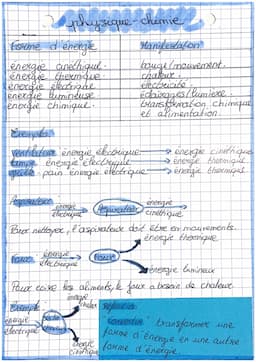 physique-chimie
Forme d'énergie
Manifestation
énergie cinéthique.
bouge/mouvement.
énergie thermique
chaleur.
énergie électrique
électricité.
énergie lumineuse.
éclairages/lumière.
énergie chimique.
transformation chimique
et alimentation.
Exemple:
ventilateur énergie électrique → énergie cinéthique
lampe énergie électrique → énergie thermique
pain énergie électrique → énergie thermique
Aspirateur
énergie électrique
Aspirateur
énergie cinéthique
Pour nettoyer, l'aspirateur doit être en mouvements.
énergie thermique
Four
énergie électrique
Four
énergie lumineux
Pour cuire tes aliments, le four a besoin de chaleur.
Exemple
énergie
énergie électrique
énergie cinétique
convertir: transformer une
forme d'énergie en une autre
forme d'énergie.